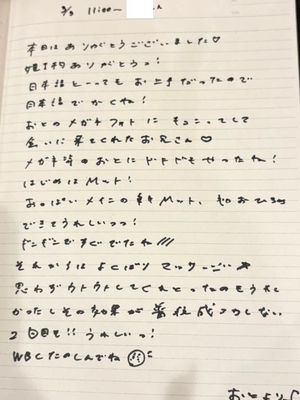 3/3 11:00〜
本日はありがとうございました♡
予約ありがとうっ!
日本語とってもお上手だったので
日本語でかくね!
おとのメガネフォトにキュンってして
会いに来てくれたお兄さん♡
メガネ姿のおとにドキドキもやったね!
はじめはMット!
おっぱいメインの Mット、
できてうれしいっっ!
ビンビンですぐでたね///
それからは よくばりマッサージ
思わずウトウトしてくれとったのもうれ
かったしその効果が
2回目も!! うれしいっ!
WBCたのしんでね
おとより